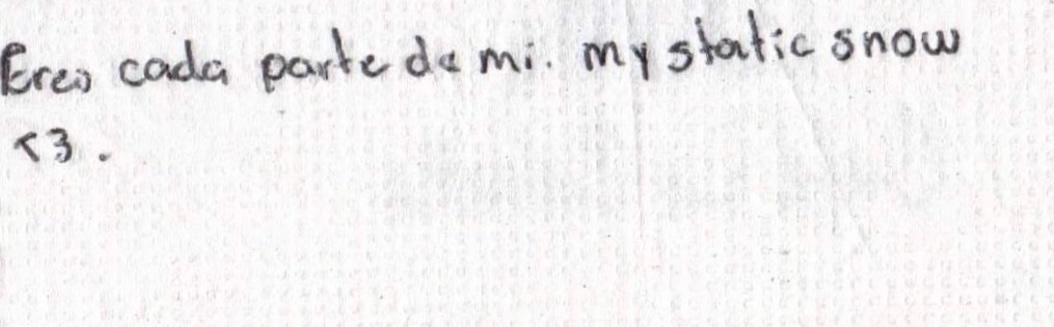 Eres cada parte de mi. my static snow
<3.